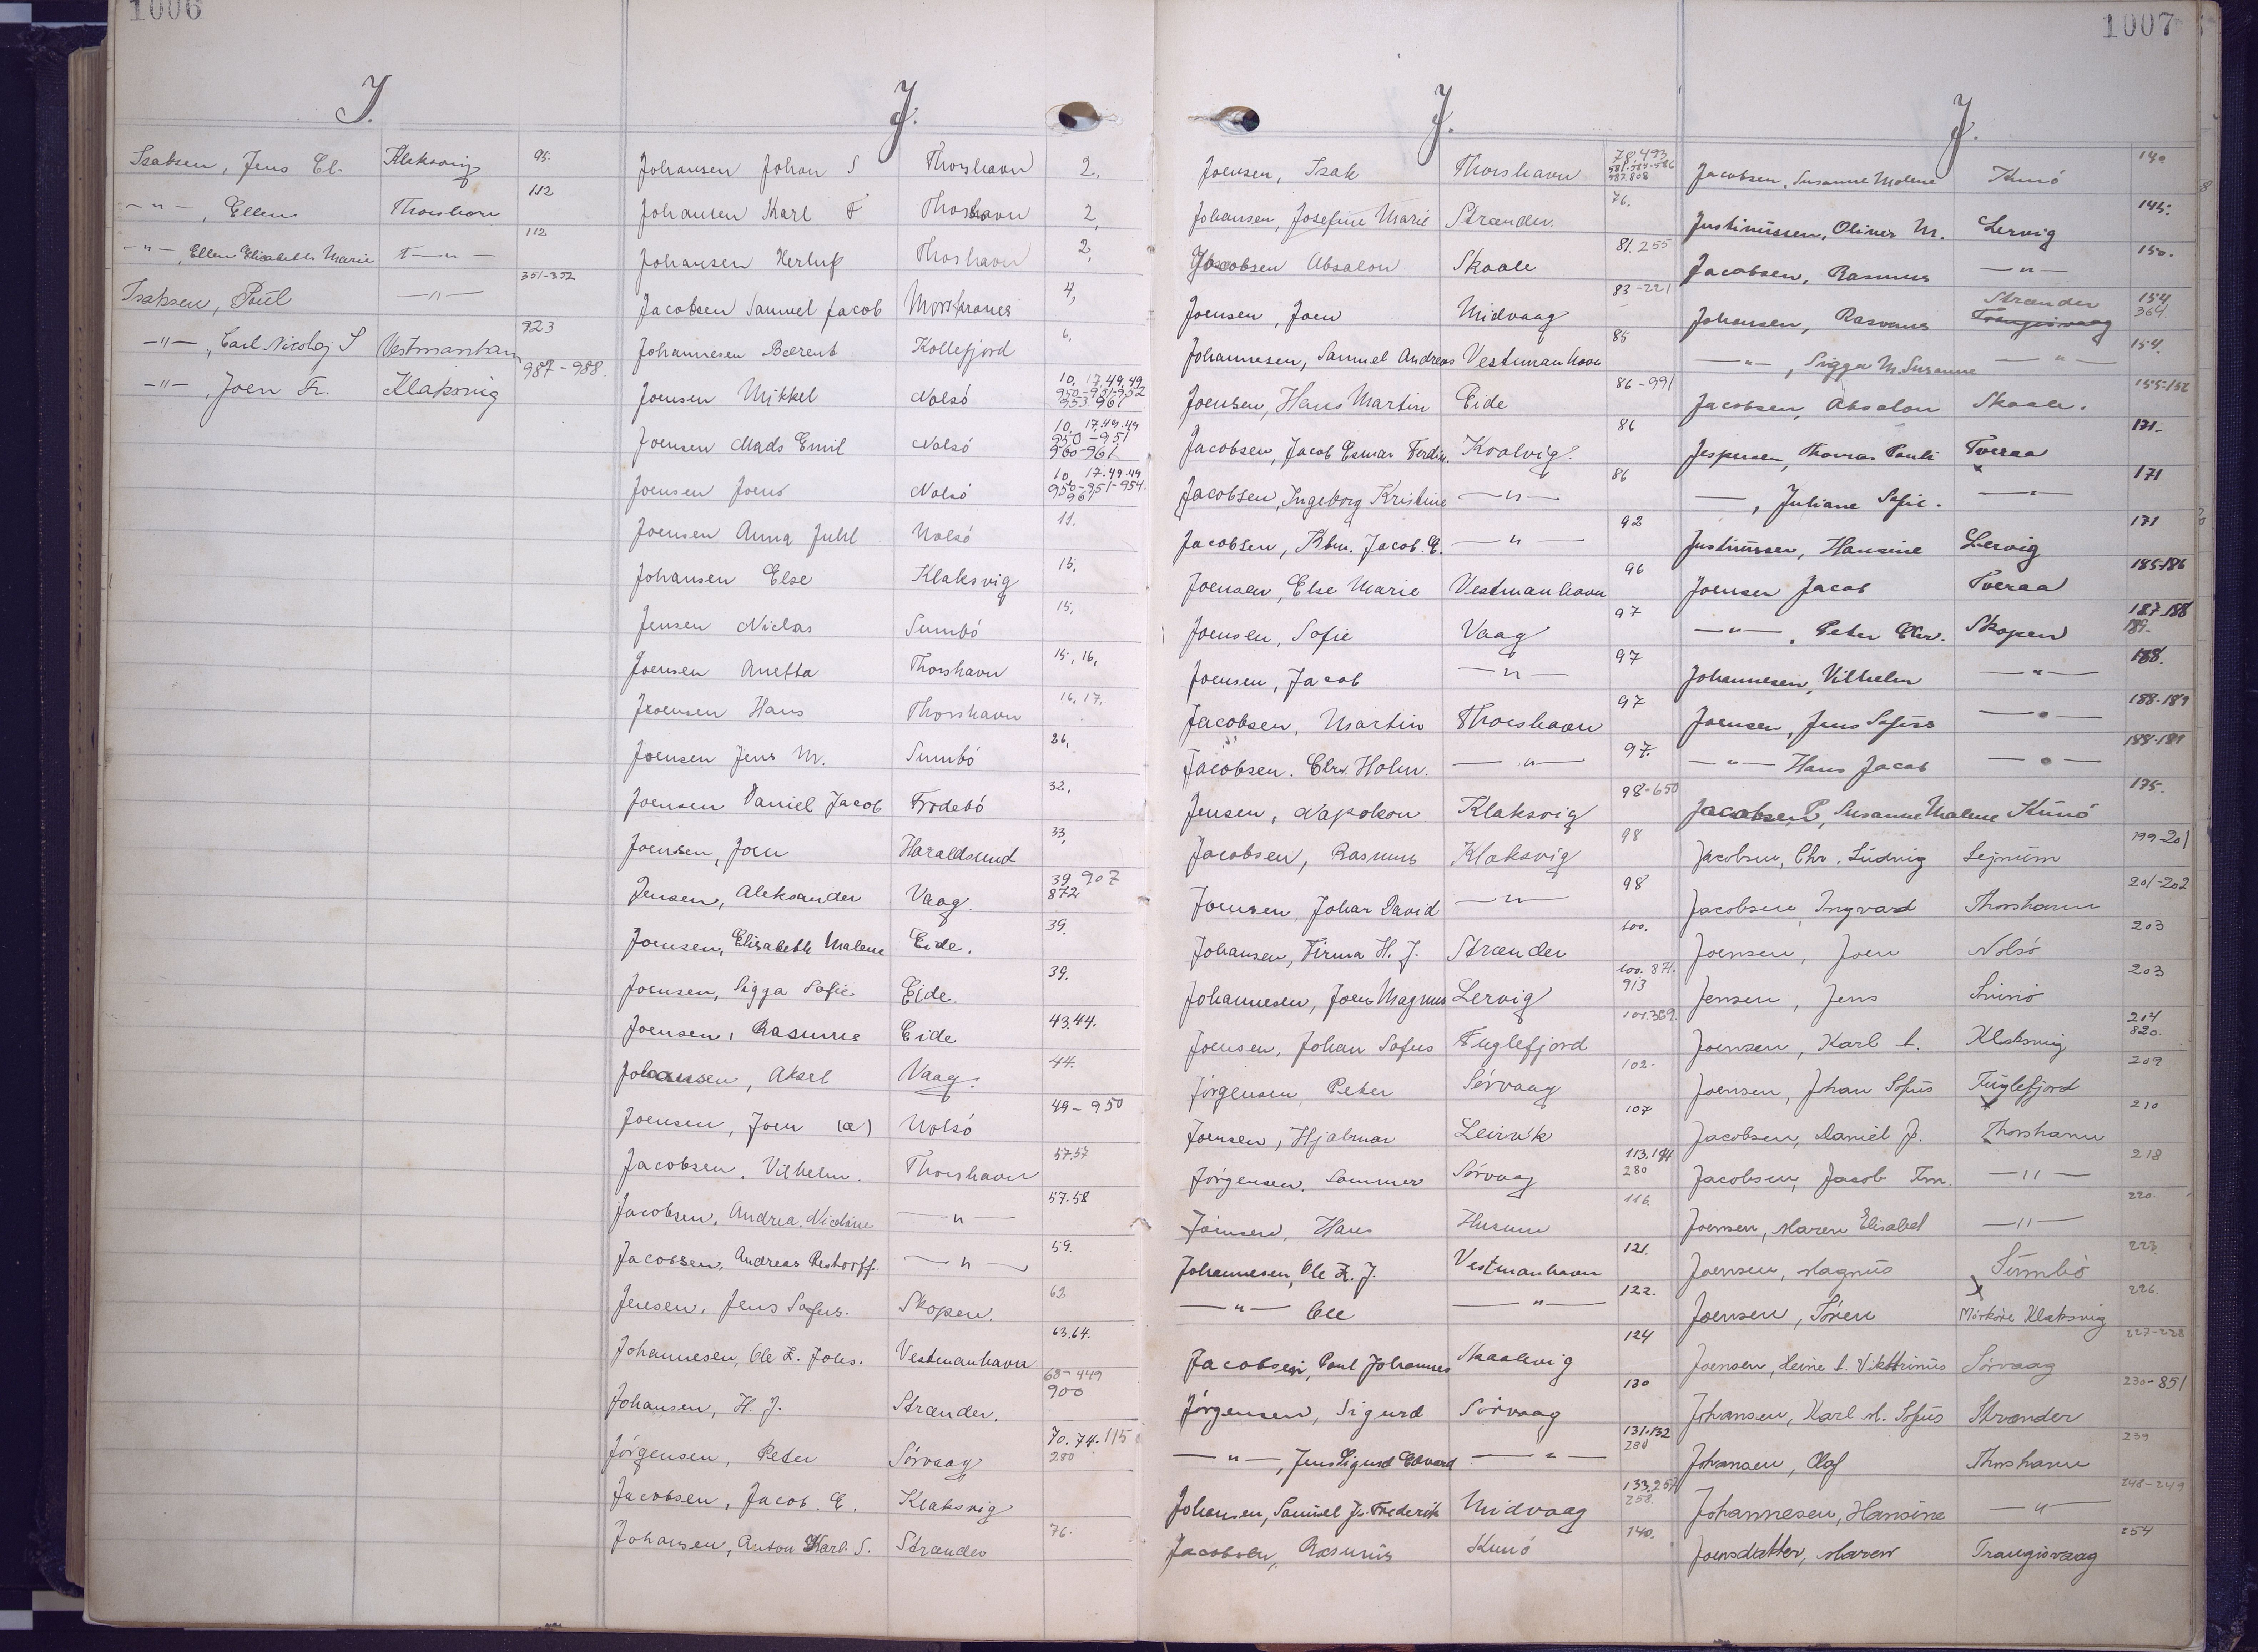 1006
I.
Isaksen, Jens El. Klaksvig 95.
—"—, Ellen Thorshavn 112
—"—, Ellen Elisabeth Marie T—"— 112.
Isaksen, Poul —"— 351-352
—"—, Carl Nicolaj S Vestmanhavn 923
—"—, Joen Fr. Klaksvig 987-988.
J.
Johansen Johan S Thorshavn 2,
Johansen Karl F Thorshavn 2,
Johansen Herluf Thorshavn 2,
Jacobsen Samuel Jacob 4,
Johannesen Beerent Kollefjord 6,
Joensen Mikkel Nolsö 10. 17.49.49 950-951-952 953 961
Joensen Mads Emil Nolsö 10. 17.49.49 950-951 960-961
Joensen Joens Nolsö 10. 17.49.49 950-951-954. 961
Joensen Anna Juhl Nolsö 11.
Johansen Else Klaksvig 15,
Jensen Niclas Sumbö 15,
Joensen Anetta Thorshavn 15, 16,
Joensen Hans Thorshavn 16, 17.
Joensen Jens M. Sumbö 26,
Joensen Daniel Jacob Frodebö 32,
Joensen, Joen Haraldsund 33,
Jensen, Aleksander Vaag 39 907 872
Joensen, Elisabeth Malene Eide. 39.
Joensen, Sigga Sofie Eide. 39.
Joensen, Rasmus Eide 43.44.
Johansen, Aksel Vaag. 44.
Joensen, Joen (a) Nolsö 49-950
Jacobsen, Vilhelm. Thorshavn 57.57
Jacobsen, Andrea Nicoline —"— 57.58
Jacobsen, Andreas Restorff. —"— 59.
Jensen, Jens Sofus. Skopen. 62
Johannesen, Ole Z. Johs. Vestmanhavn 63.64.
Johansen, H. J. Strænder. 68-449 900
Jörgensen, Peter Sörvaag 70. 74. 115 280
Jacobsen, Jacob. E. Klaksvig
Johansen, Anton Karl. S. Strænder 76.
1007
J.
Joensen, Isak Thorshavn 78.493
Johansen, Josefine Marie Strænder. 76.
Jacobsen Absalon Skaale 81. 255
Joensen, Joen Midvaag 83-221
Johannesen, Samuel Andreas Vestmanhavn 85
Joensen, Hans Martin Eide 86-991
Jacobsen, Jacob Esmar Ferdin. Kvalvig. 86
Jacobsen, Ingeborg Kristine —"— 86
Jacobsen, Kbm. Jacob. E. —"— 92
Joensen, Else Marie Vestmanhavn 96
Joensen, Sofie Vaag 97
Joensen, Jacob —"— 97
Jacobsen, Martin Thorshavn 97
Jacobsen. Chr. Holm. —"— 97.
Jensen, Napoleon Klaksvig 98-650
Jacobsen, Rasmus Klaksvig 98
Joensen, Johan David —"— 98
Johansen, Firma H. J. Strænder 100.
Johannesen, Joen Magnus Lervig 100. 871. 913
Joensen, Johan Sofus Fuglefjord 101.369.
Jörgensen, Peter Sörvaag 102.
Joensen, Hjalmar Leirvik 107
Jörgensen, Sommer Sörvaag 113.194 280
Joensen, Hans Husum 116.
Johannesen, Ole Z. J. Vestmanhavn 121.
—"— Ole —"— 122.
Jacobsen, Poul Johannes Skaalevig 124
Jörgensen, Sigurd Sörvaag 130
—"—, Jens Sigurd Edvard —"— 131-132 280
Johansen, Samuel Js. Frederik Midvaag 133,257 258.
Jacobsen, Rasmus Kunö 140.
J.
Jacobsen, Susanne Malene Kunö 140
Justinussen, Oliver M. Lervig 145.
Jacobsen, Rasmus —"— 150.
Johansen, Rasmus Strænder Trangisvaag 154 364
—"—, Sigga M. Susanne —"— 154.
Jacobsen, Absalon Skaale. 155-156
Jespersen, Thomas Pauli Tveraa 171.
—, Juliane Sofie. —"— 171
Justinussen, Hansine Lervig 171
Joensen Jacob Tveraa 185-186
—"—, Peter Chr. Skopen 187.188 189.
Johannesen, Vilhelm —"— 188.
Joensen, Jens Sofus —"— 188-189
—"— Hans Jacob —"— 188-189
Jacobsen, Susanne Malene Kunö 175.
Jacobsen, Chr. Ludvig Sejnum 199-201
Jacobsen, Ingvard Thorshavn 201-202
Joensen, Joen Nolsö 203
Jensen, Jens 203
Joensen, Karl A. Klaksvig 204 820.
Joensen, Johan Sofus Fuglefjord 209
Jacobsen, Daniel J. Thorshavn 210
Jacobsen, Jacob Fm. —"— 218
Joensen, Maren Elisabet —"— 220.
Joensen, Magnus Sumbö 223
Joensen, Sören Mörköre Klaksvig 226.
Joensen, Heine A. Sörvaag 227-228
Johansen, Karl M. Sofus Strænder 230-851
Johansen, Olaf Thorshavn 239
Johannesen, Hansine —"— 248-249
Joensdatter, Maren Trangisvaag 254